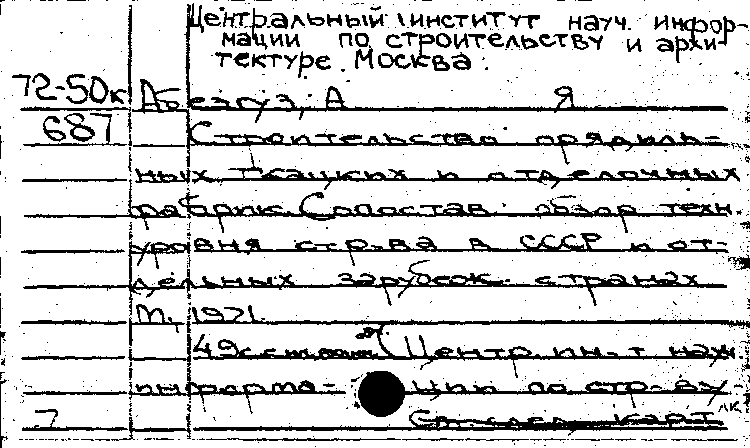 Центральный институт науч. инфор-
мации по строительству и архи-
тектуре. Москва.
72-50к Абезгуз, А Я
687 Строительство прядиль-
ных ткацких и отделочных
фабрик. Сопостав. обзор техн.
уровня стр-ва в СССР и от-
дельных зарубеж. странах
М., 1971.
49с. с ил. (Центр. ин-т науч.
информа- ции по стр-ву
7 См. след. карт.